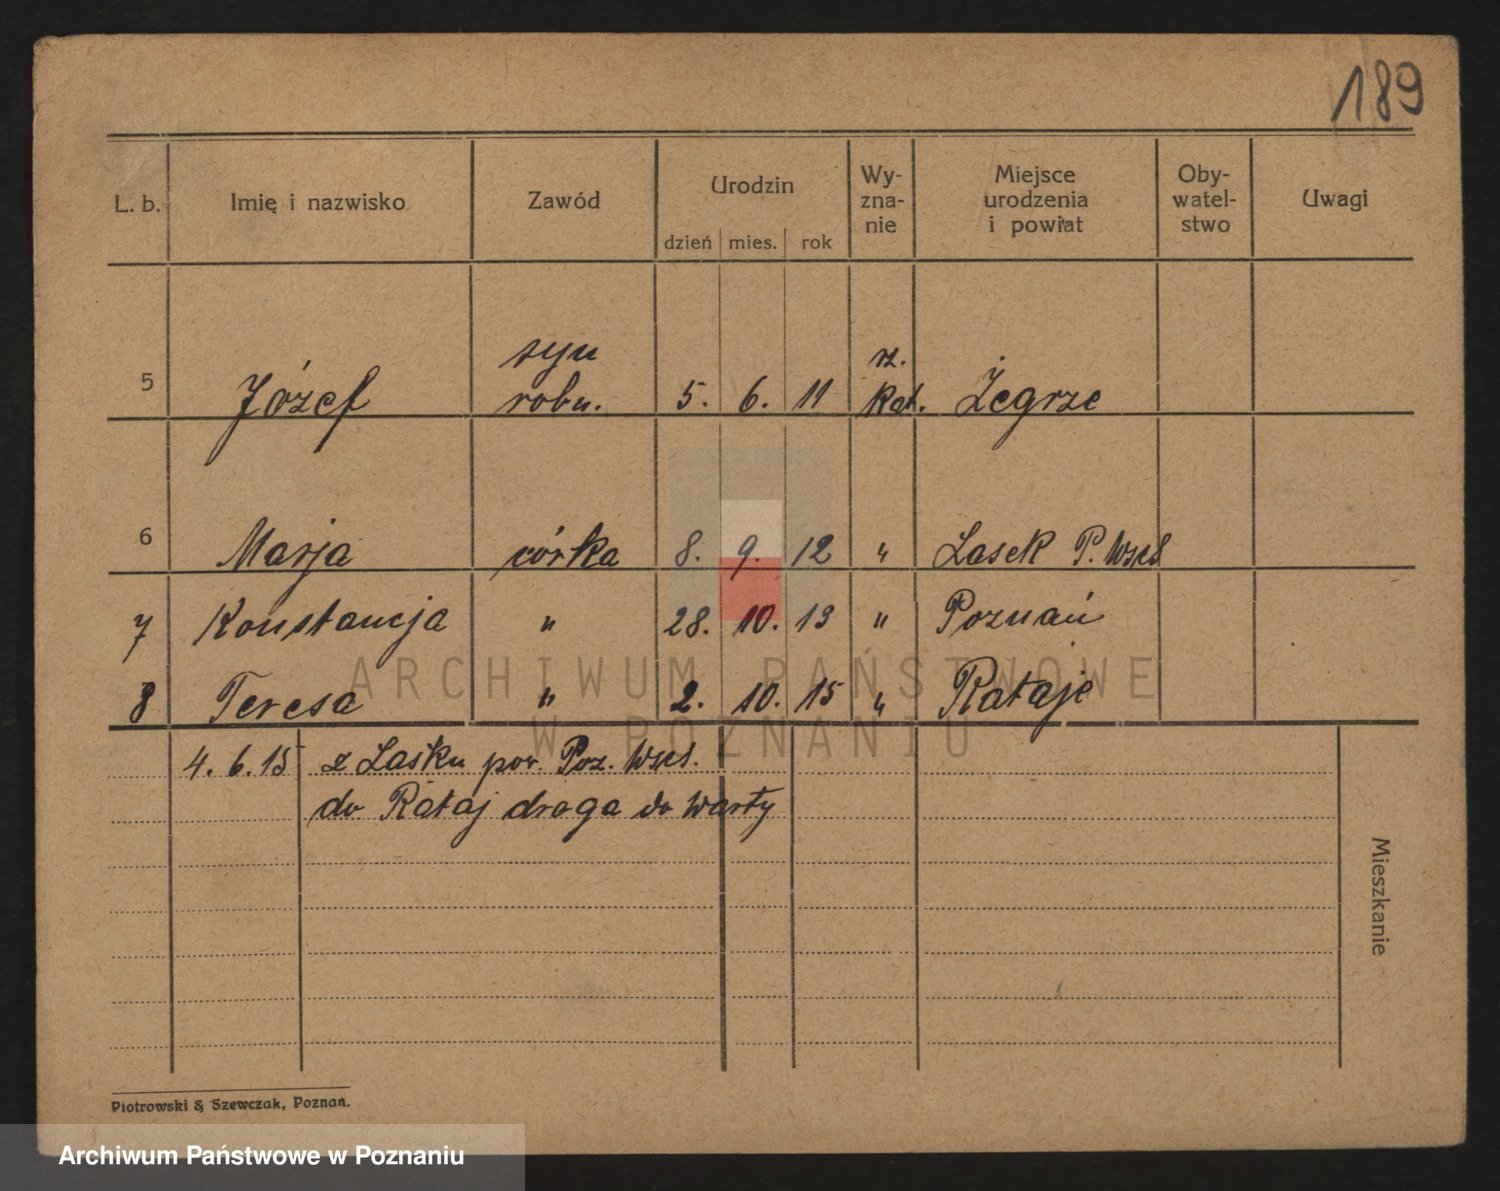 189
L. b.
Imię i nazwisko
Zawód
Urodzin
dzień mies. rok
Wy-
zna-
nie
Miejsce
urodzenia
i powiat
Oby-
watel-
stwo
Uwagi
syn rz.
5 Józef robn. 5. 6. 11 kat. Żegrze
6 Marja córka 8. 9. 12 " Lasek P. Wsch
7 Konstancja " 28. 10. 13 " Poznań
8 Teresa " 2. 10. 15 " Rataje
4. 6. 15 z Lasku pow. Poz. Wsch.
do Rataj droga do Warty
Mieszkanie
Piotrowski & Szewczak, Poznań.
ARCHIWUM PAŃSTWOWE
W POZNANIU
Archiwum Państwowe w Poznaniu